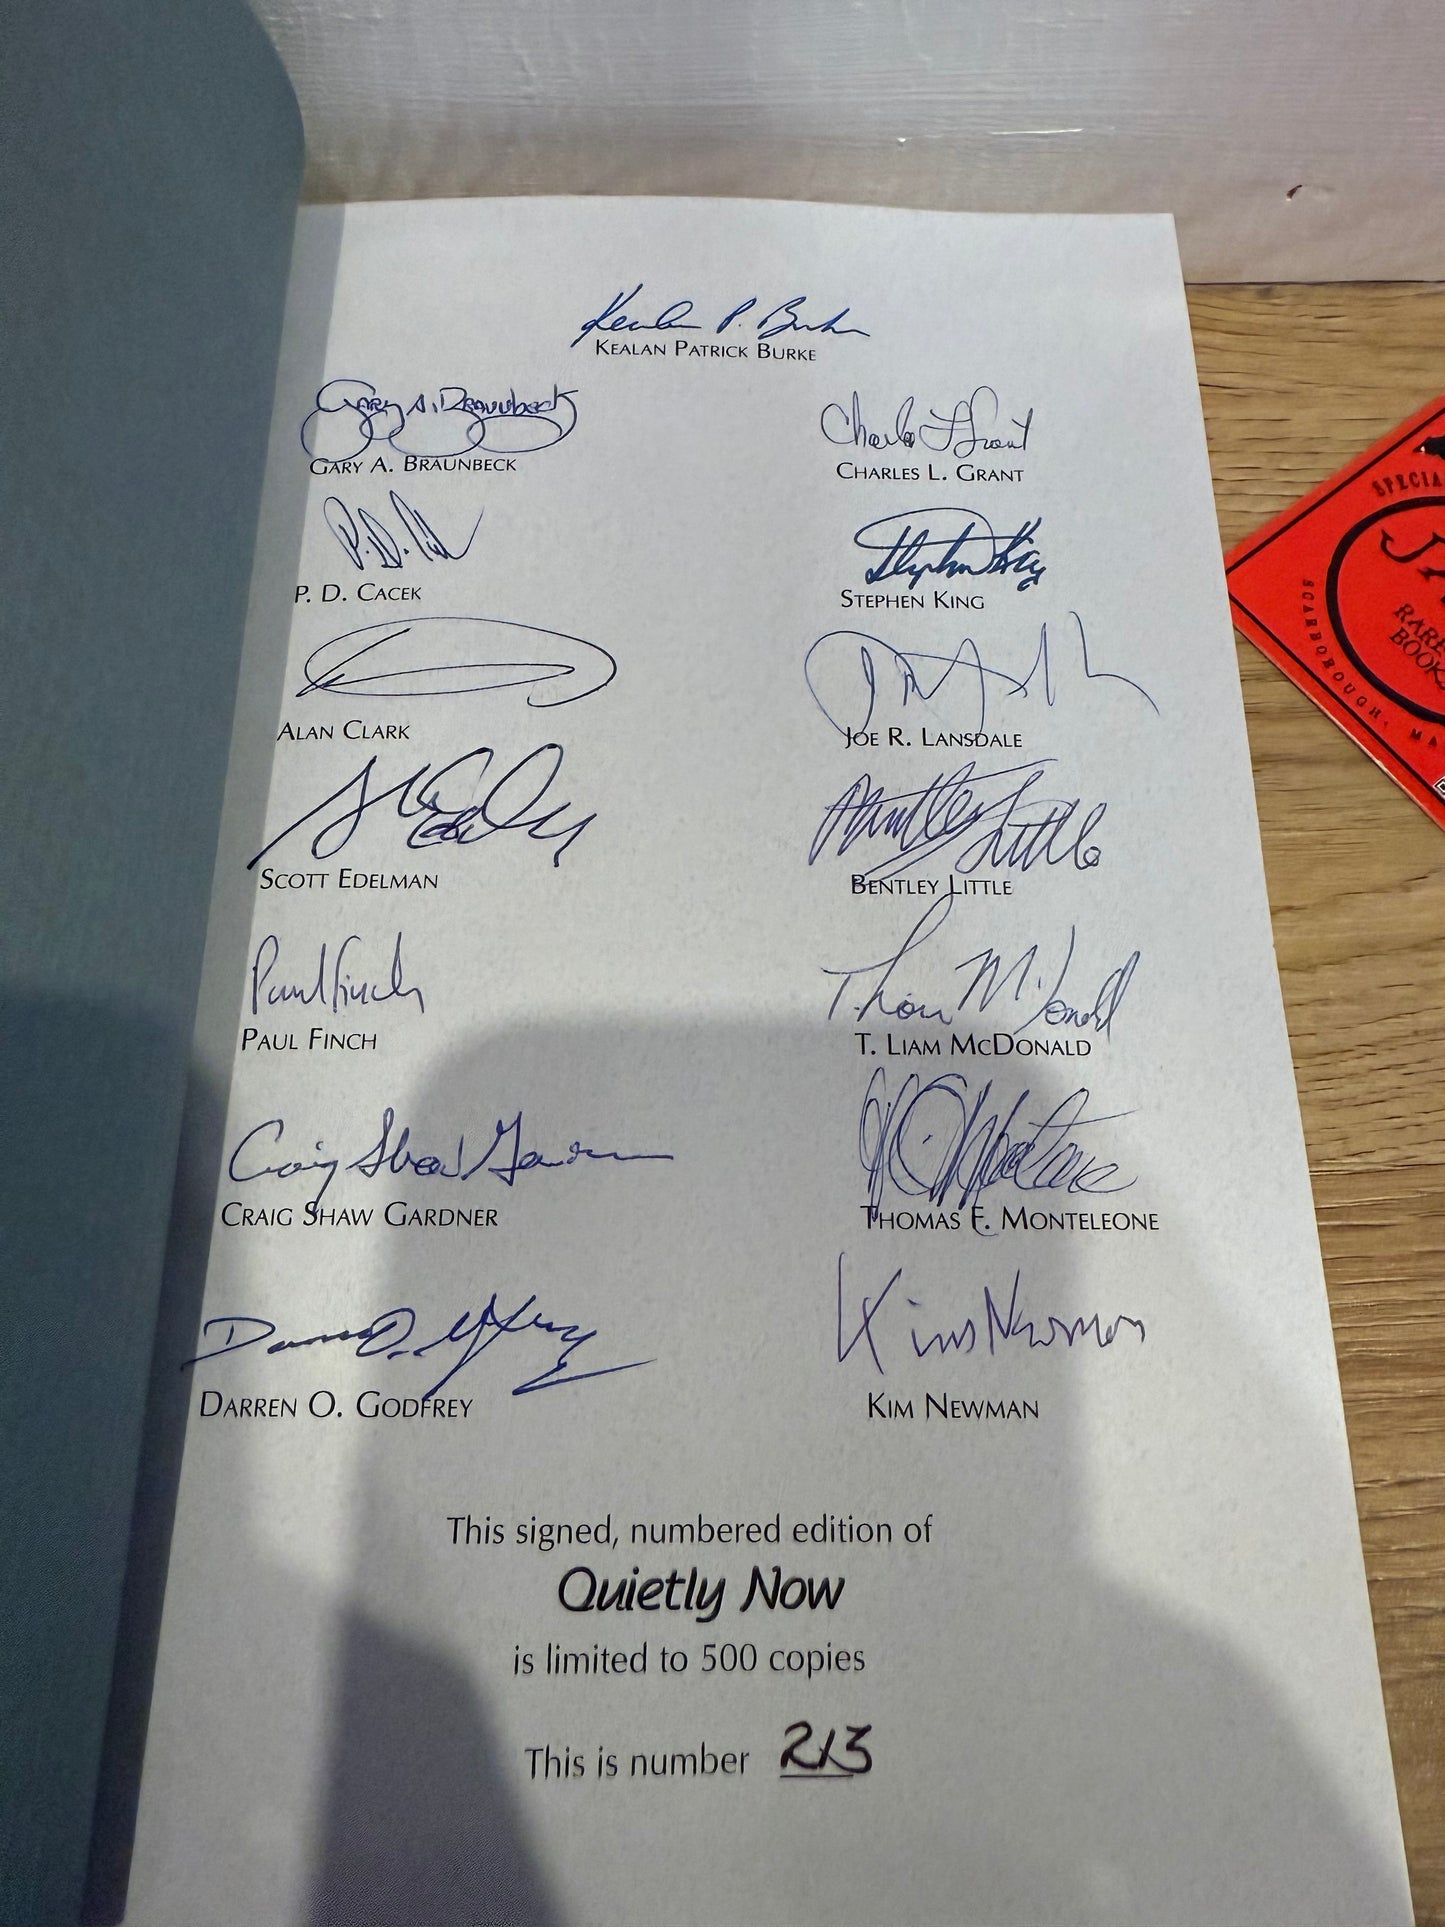 Kealan P. Burke
KEALAN PATRICK BURKE
Gary A. Braunbeck
GARY A. BRAUNBECK
Charles L. Grant
CHARLES L. GRANT
P. D. Cacek
P. D. CACEK
Stephen King
STEPHEN KING
ALAN CLARK
JOE R. LANSDALE
SCOTT EDELMAN
Bentley Little
BENTLEY LITTLE
Paul Finch
PAUL FINCH
T. Liam McDonald
T. LIAM MCDONALD
Craig Shaw Gardner
CRAIG SHAW GARDNER
THOMAS F. MONTELEONE
Darren O. Godfrey
DARREN O. GODFREY
Kim Newman
KIM NEWMAN
This signed, numbered edition of
Quietly Now
is limited to 500 copies
This is number 213
SPECIA
RARE
BOOKS
SCARBOROUGH, MA